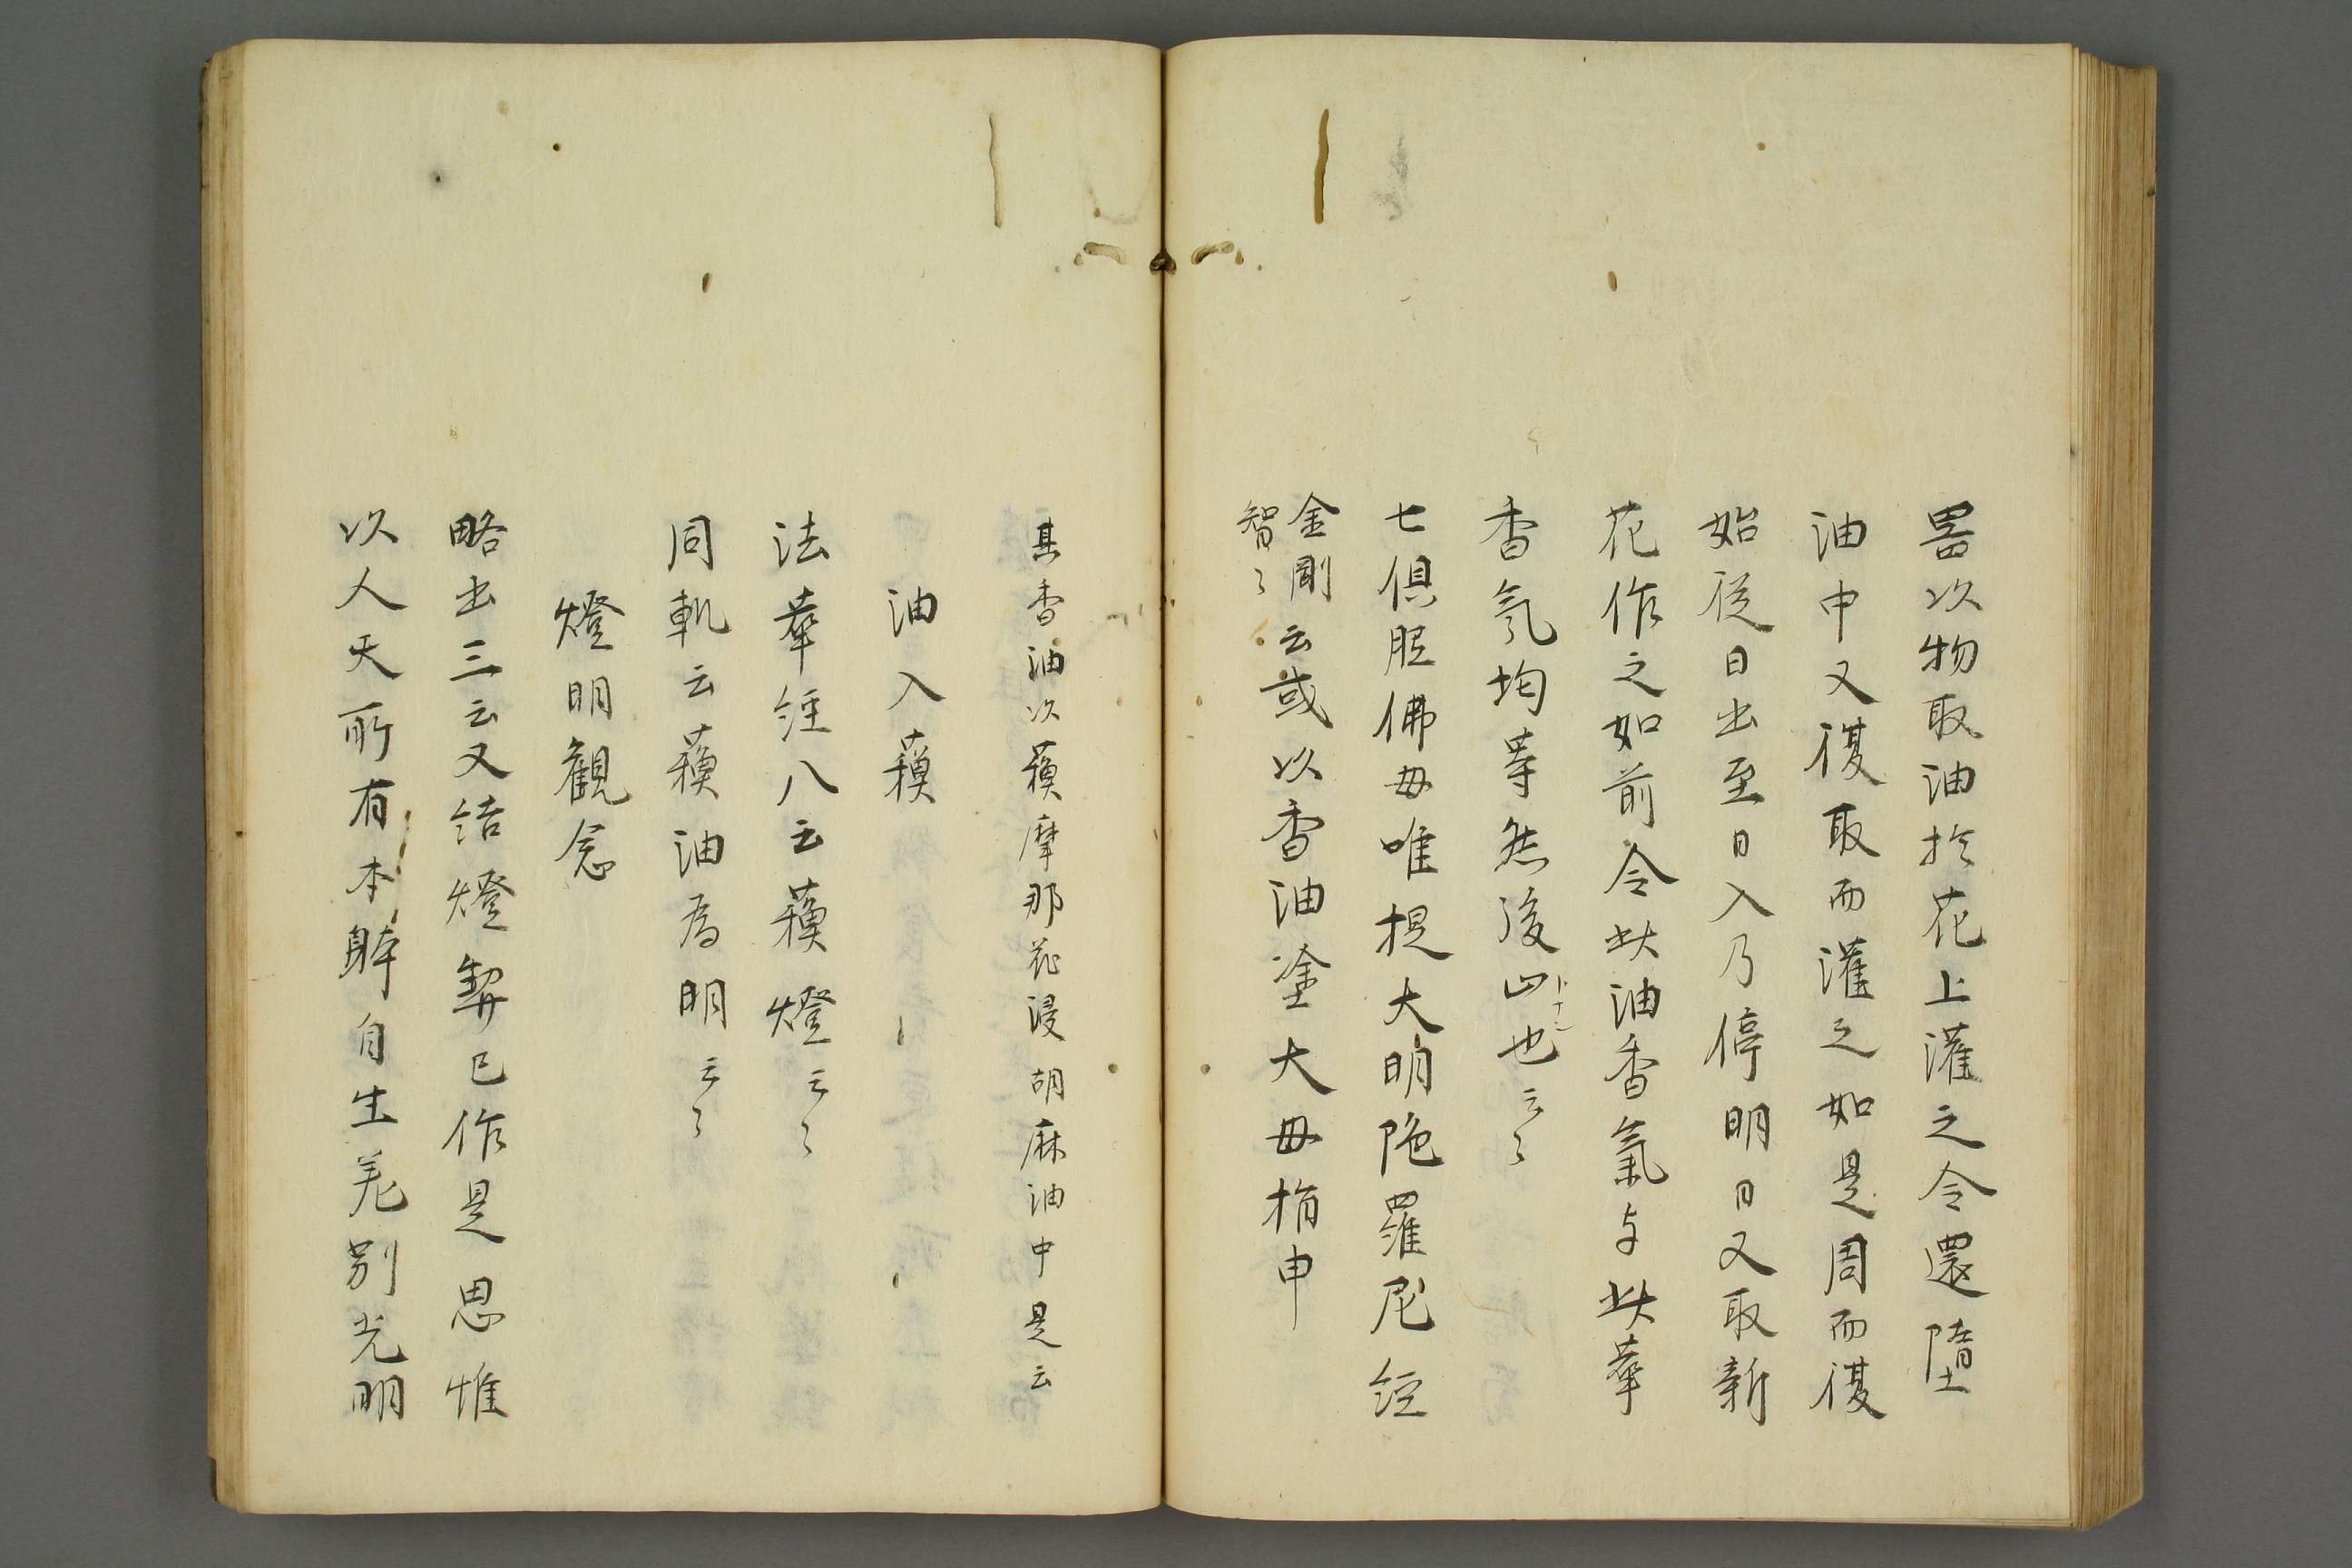 器以物取油於花上灌之令還墮
油中又復取而灌之如是周而復
始従日出至日入乃停明日又取新
花作之如前令此油香氣与此華
香氣均等然後止也云々
七倶胝佛母唯提大明陁羅尼経
金剛智云或以香油塗大母指甲
云々
其香油以蘓摩那花浸胡麻油中是云
油入蘓
法華経八云蘓燈云々
同軌云蘓油為明云々
燈明観念
略出三云又結燈契已作是思惟
以人天所有本躰自生差別光明